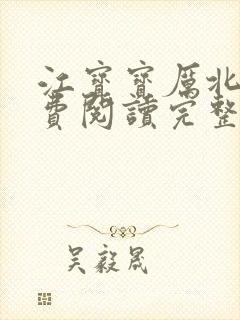 江寶寶厲北
費閱讀完整
吳毅晟